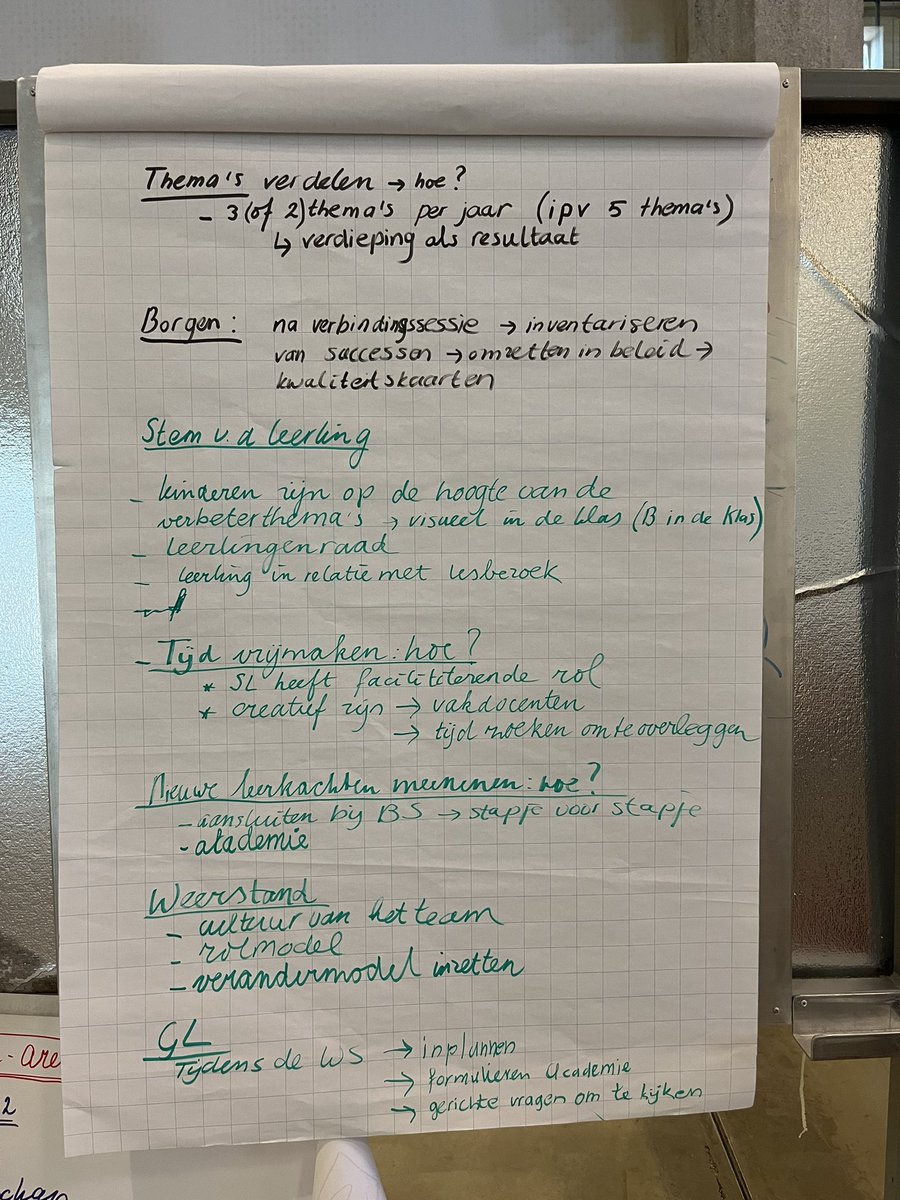 Thema's verdelen → hoe?
- 3 (of 2) thema's per jaar (ipv 5 thema's)
↳ verdieping als resultaat
Borgen: na verbindingssessie → inventariseren
van successen → omzetten in beleid →
kwaliteitskaarten
Stem v.d leerling
- kinderen zijn op de hoogte van de
verbeterthema's → visueel in de klas (B in de klas)
- leerlingenraad
- leerling in relatie met lesbezoek
- Tijd vrijmaken: hoe?
* SL heeft facilititerende rol
* creatief zijn → vakdocenten
→ tijd zoeken om te overleggen
Nieuwe leerkachten meenemen: hoe?
- aansluiten bij BS → stapje voor stapje
- academie
Weerstand
- cultuur van het team
- rolmodel
- verandermodel inzetten
GL
Tijdens de WS → inplannen
→ formuleren academie
→ gerichte vragen om te kijken
- are
2